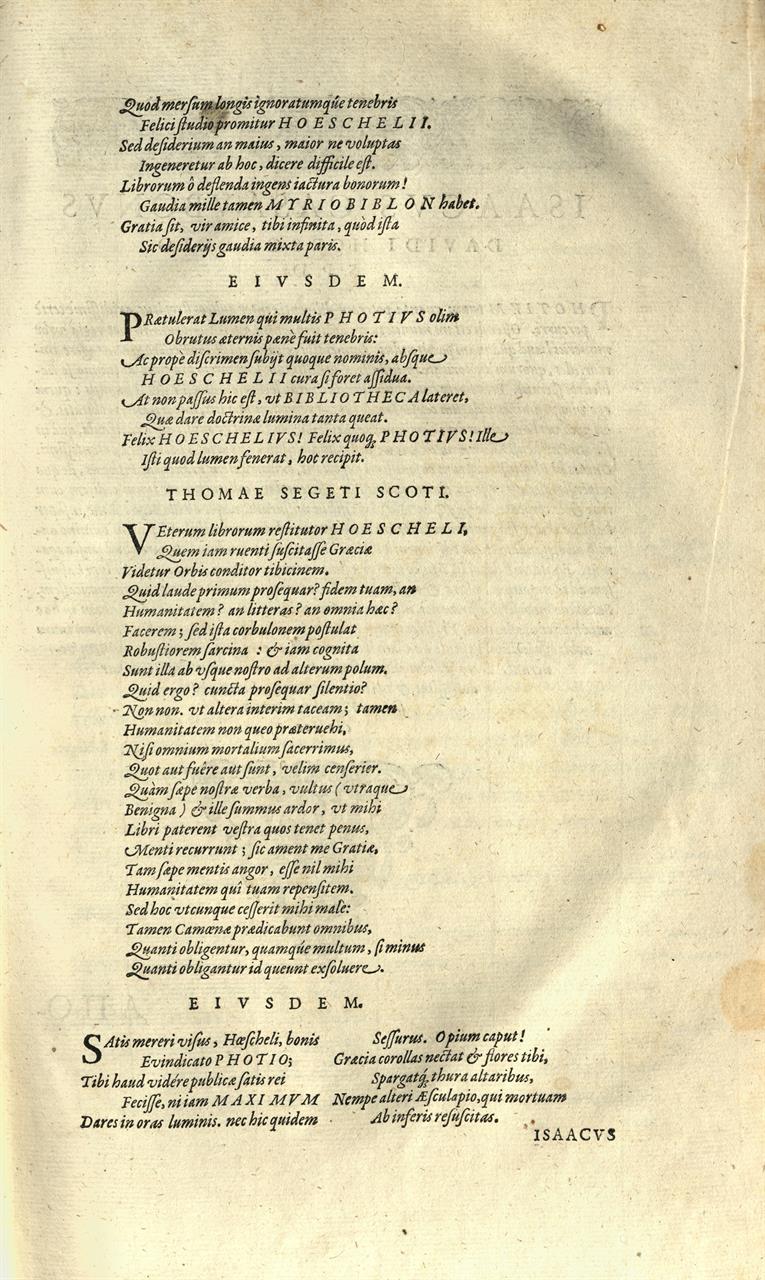 Quod mersum longis ignoratumqúe tenebris
Felici studio promitur HOESCHELII.
Sed desiderium an maius, maior ne voluptas
Ingeneretur ab hoc, dicere difficile est.
Librorum ô deflenda ingens iactura bonorum!
Gaudia mille tamen MYRIOBIBLON habet.
Gratia sit, vir amice, tibi infinita, quòd ista
Sic desiderijs gaudia mixta paris.
EIVSDEM.
PRætulerat Lumen qui multis PHOTIVS olim
Obrutus æternis pænè fuit tenebris:
Ac propè discrimen subijt quoque nominis, absque
HOESCHELII cura si foret assidua.
At non passus hic est, vt BIBLIOTHECA lateret,
Quæ dare doctrinæ lumina tanta queat.
Felix HOESCHELIVS! Felix quoq; PHOTIVS! Ille
Isti quod lumen fenerat, hoc recipit.
THOMAE SEGETI SCOTI.
VEterum librorum restitutor HOESCHELI,
Quem iam ruenti suscitasse Græciæ
Videtur Orbis conditor tibicinem.
Quid laude primum prosequar? fidem tuam, an
Humanitatem? an litteras? an omnia hæc?
Facerem; sed ista corbulonem postulat
Robustiorem sarcina : & iam cognita
Sunt illa ab vsque nostro ad alterum polum.
Quid ergo? cuncta prosequar silentio?
Non non. vt altera interim taceam; tamen
Humanitatem non queo præteruehi,
Nisi omnium mortalium sacerrimus,
Quot aut fuêre aut sunt, velim censerier.
Quàm sæpe nostræ verba, vultus (vtraque
Benigna) & ille summus ardor, vt mihi
Libri paterent vestra quos tenet penus,
Menti recurrunt; sic ament me Gratiæ,
Tam sæpe mentis angor, esse nil mihi
Humanitatem quî tuam repensitem.
Sed hoc vtcunque cesserit mihi malè:
Tamen Camœnæ prædicabunt omnibus,
Quanti obligentur, quamqúe multum, si minus
Quanti obligantur id queunt exsoluere.
EIVSDEM.
SAtis mereri visus, Hœscheli, bonis
Evindicato PHOTIO;
Tibi haud vidére publicæ satis rei
Fecisse, ni iam MAXIMVM
Dares in oras luminis. nec hic quidem
Sessurus. O pium caput!
Græcia corollas nectat & flores tibi,
Spargatq́; thura altaribus,
Nempe alteri Æsculapio, qui mortuam
Ab inferis resuscitas.
ISAACVS